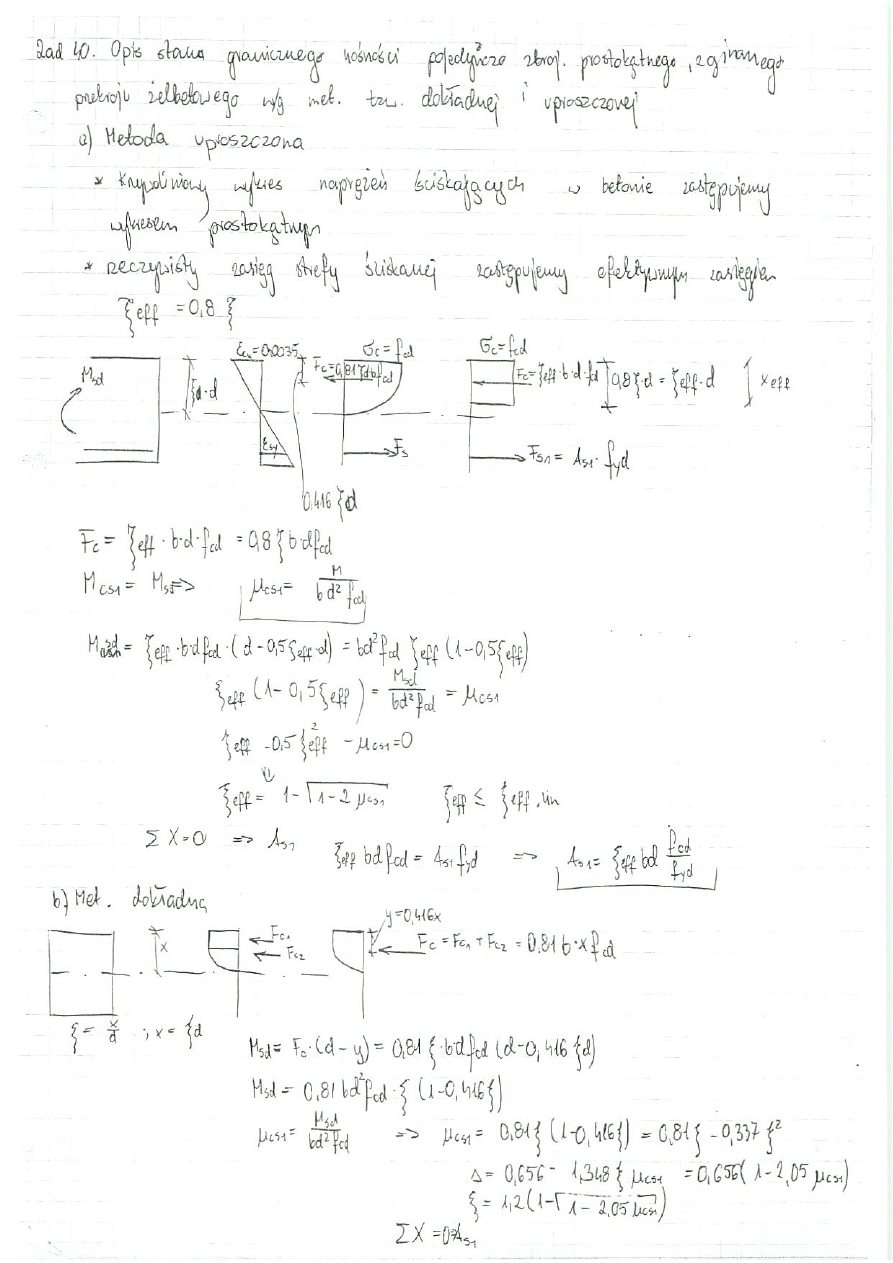 Zad 40. Opis stanu granicznego nośności pojedyńczo zbroj. prostokątnego, zginanego
przekroju żelbetowego wg met. tzw. dokładnej i uproszczonej
a) Metoda uproszczona
* Krzywoliniowy wykres naprężeń ściskających w betonie zastępujemy
wykresem prostokątnym
* rzeczywisty zasięg strefy ściskanej zastępujemy efektywnym zasięgiem
ξeff = 0,8 ξ
Msd ξ·d εcu = 0.0035 Fc=0,81ξdbfcd σc = fcd σc = fcd Fc = ξeff·b·d·fcd 0,8ξ·d = ξeff·d xeff
εsy Fs Fs1 = As1·fyd
0,416 ξd
Fc = ξeff·b·d·fcd = 0,8ξb·dfcd
Mcs1 = Msd => μcs1 = M / bd²fcd
Msd = ξeff·bdfcd·(d-0,5ξeff·d) = bd²fcd ξeff (1-0,5ξeff)
ξeff (1-0,5ξeff) = Msd / bd²fcd = μcs1
ξeff - 0,5ξ²eff - μcs1 = 0
ξeff = 1-√(1-2μcs1) ξeff ≤ ξeff,lim
ΣX=0 => As1
ξeff bdfcd = As1fyd => As1 = ξeff bd fcd / fyd
b) Met. dokładna
x Fc1 Fc2 y=0,416x Fc = Fc1 + Fc2 = 0.81b·xfcd
ξ = x/d ; x = ξd
Msd = Fc·(d-y) = 0,81ξ·bdfcd (d-0,416ξd)
Msd = 0,81bd²fcd·ξ(1-0,416ξ)
μcs1 = Msd / bd²fcd => μcs1 = 0,81ξ(1-0,416ξ) = 0,81ξ - 0,337ξ²
Δ = 0,656 - 1,348ξ μcs1 = 0,656(1-2,05μcs1)
ξ = 1,2(1-√(1-2,05μcs1))
ΣX = 0 => As1